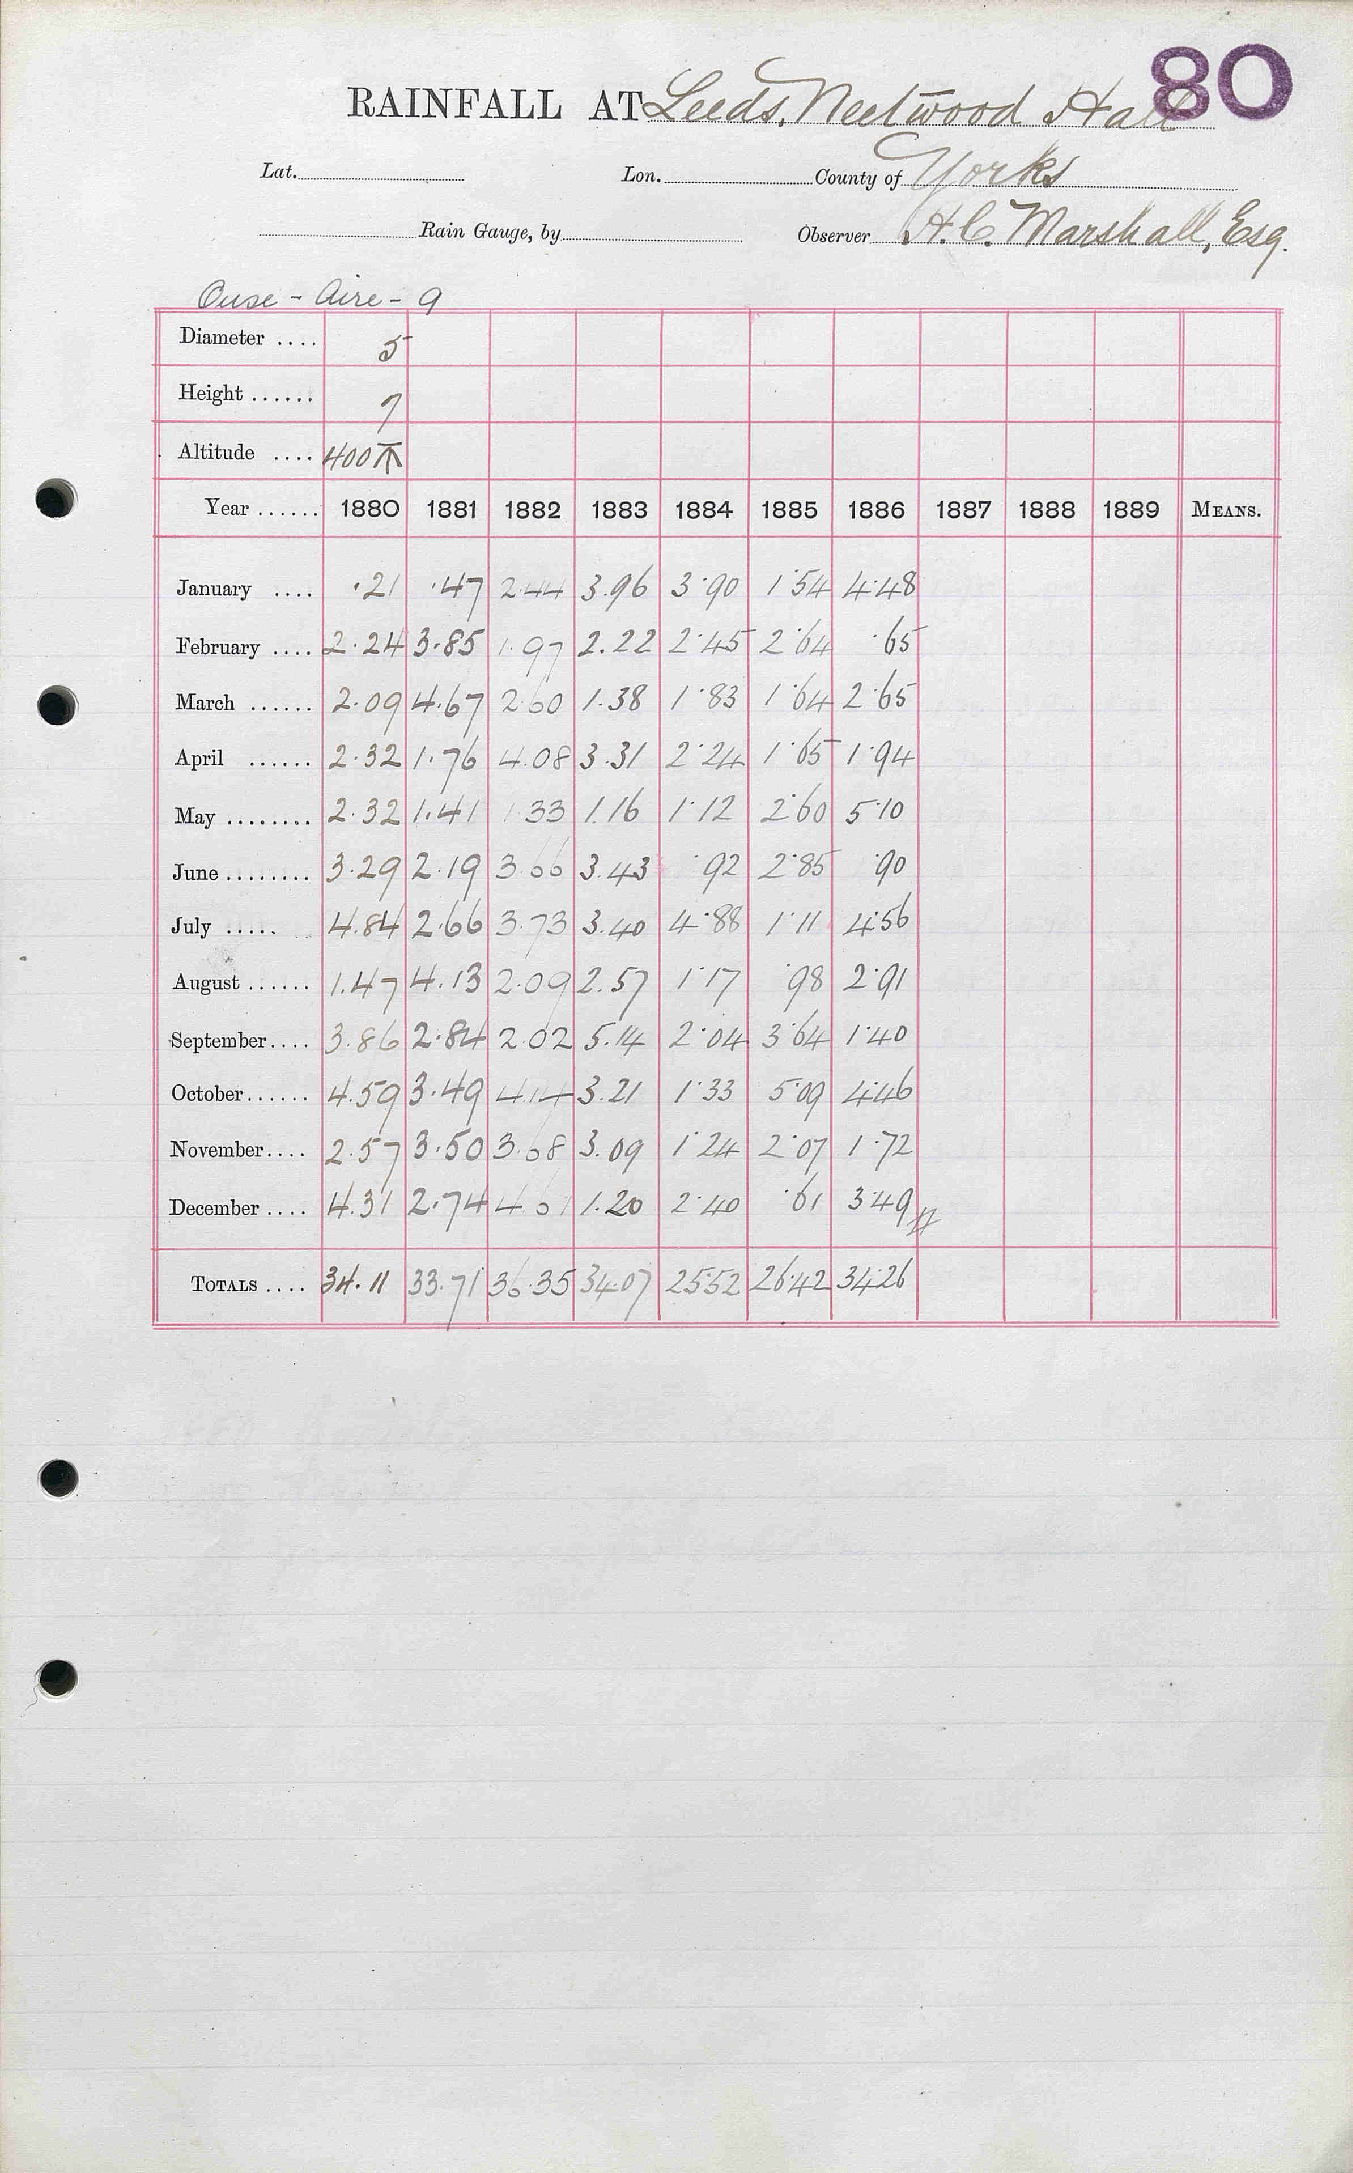 80
RAINFALL AT Leeds, Weetwood Hall
Lat. Lon. County of Yorks
Rain Gauge, by Observer H.C. Marshall, Esq.
Ouse - Aire - 9
Diameter .... 5
Height ...... 7
Altitude .... 400 T
Year ...... 1880 1881 1882 1883 1884 1885 1886 1887 1888 1889 MEANS.
January .... .21 .47 2.44 3.96 3.90 1.54 4.48
February .... 2.24 3.85 1.97 2.22 2.45 2.64 .65
March ...... 2.09 4.67 2.60 1.38 1.83 1.64 2.65
April ...... 2.32 1.76 4.08 3.31 2.24 1.65 1.94
May ........ 2.32 1.41 1.33 1.16 1.12 2.60 5.10
June ........ 3.29 2.19 3.66 3.43 .92 2.85 .90
July ..... 4.84 2.66 3.73 3.40 4.88 1.11 4.56
August ...... 1.47 4.13 2.09 2.57 1.17 .98 2.91
September.... 3.86 2.84 2.02 5.14 2.04 3.64 1.40
October...... 4.59 3.49 4.14 3.21 1.33 5.09 4.46
November.... 2.57 3.50 3.68 3.09 1.24 2.07 1.72
December .... 4.31 2.74 4.61 1.20 2.40 .61 3.49
TOTALS .... 34.11 33.71 36.35 34.07 25.52 26.42 34.26